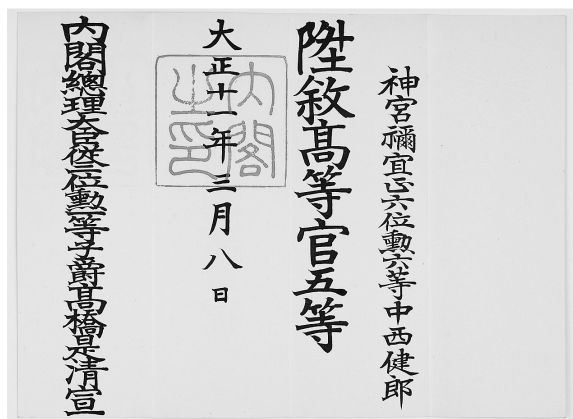 神宮禰宜正六位勲六等中西健郎
陞敘高等官五等
大正十一年三月八日
內閣之印
內閣總理大臣從三位勳一等子爵髙橋是清宣